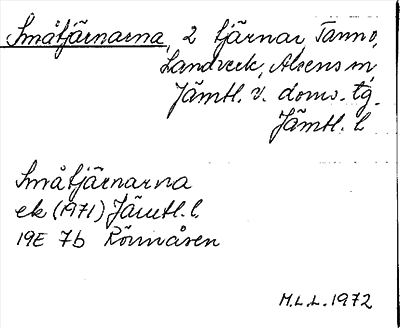 Småtjärnarna, 2 tjärnar, Tanno,
Landverk, Alsens sn,
Jämtl. v. doms. tg.
Jämtl. l.
Småtjärnarna
ek (1971) Jämtl. l.
19E 7b Rönnåsen
M.L.L. 1972